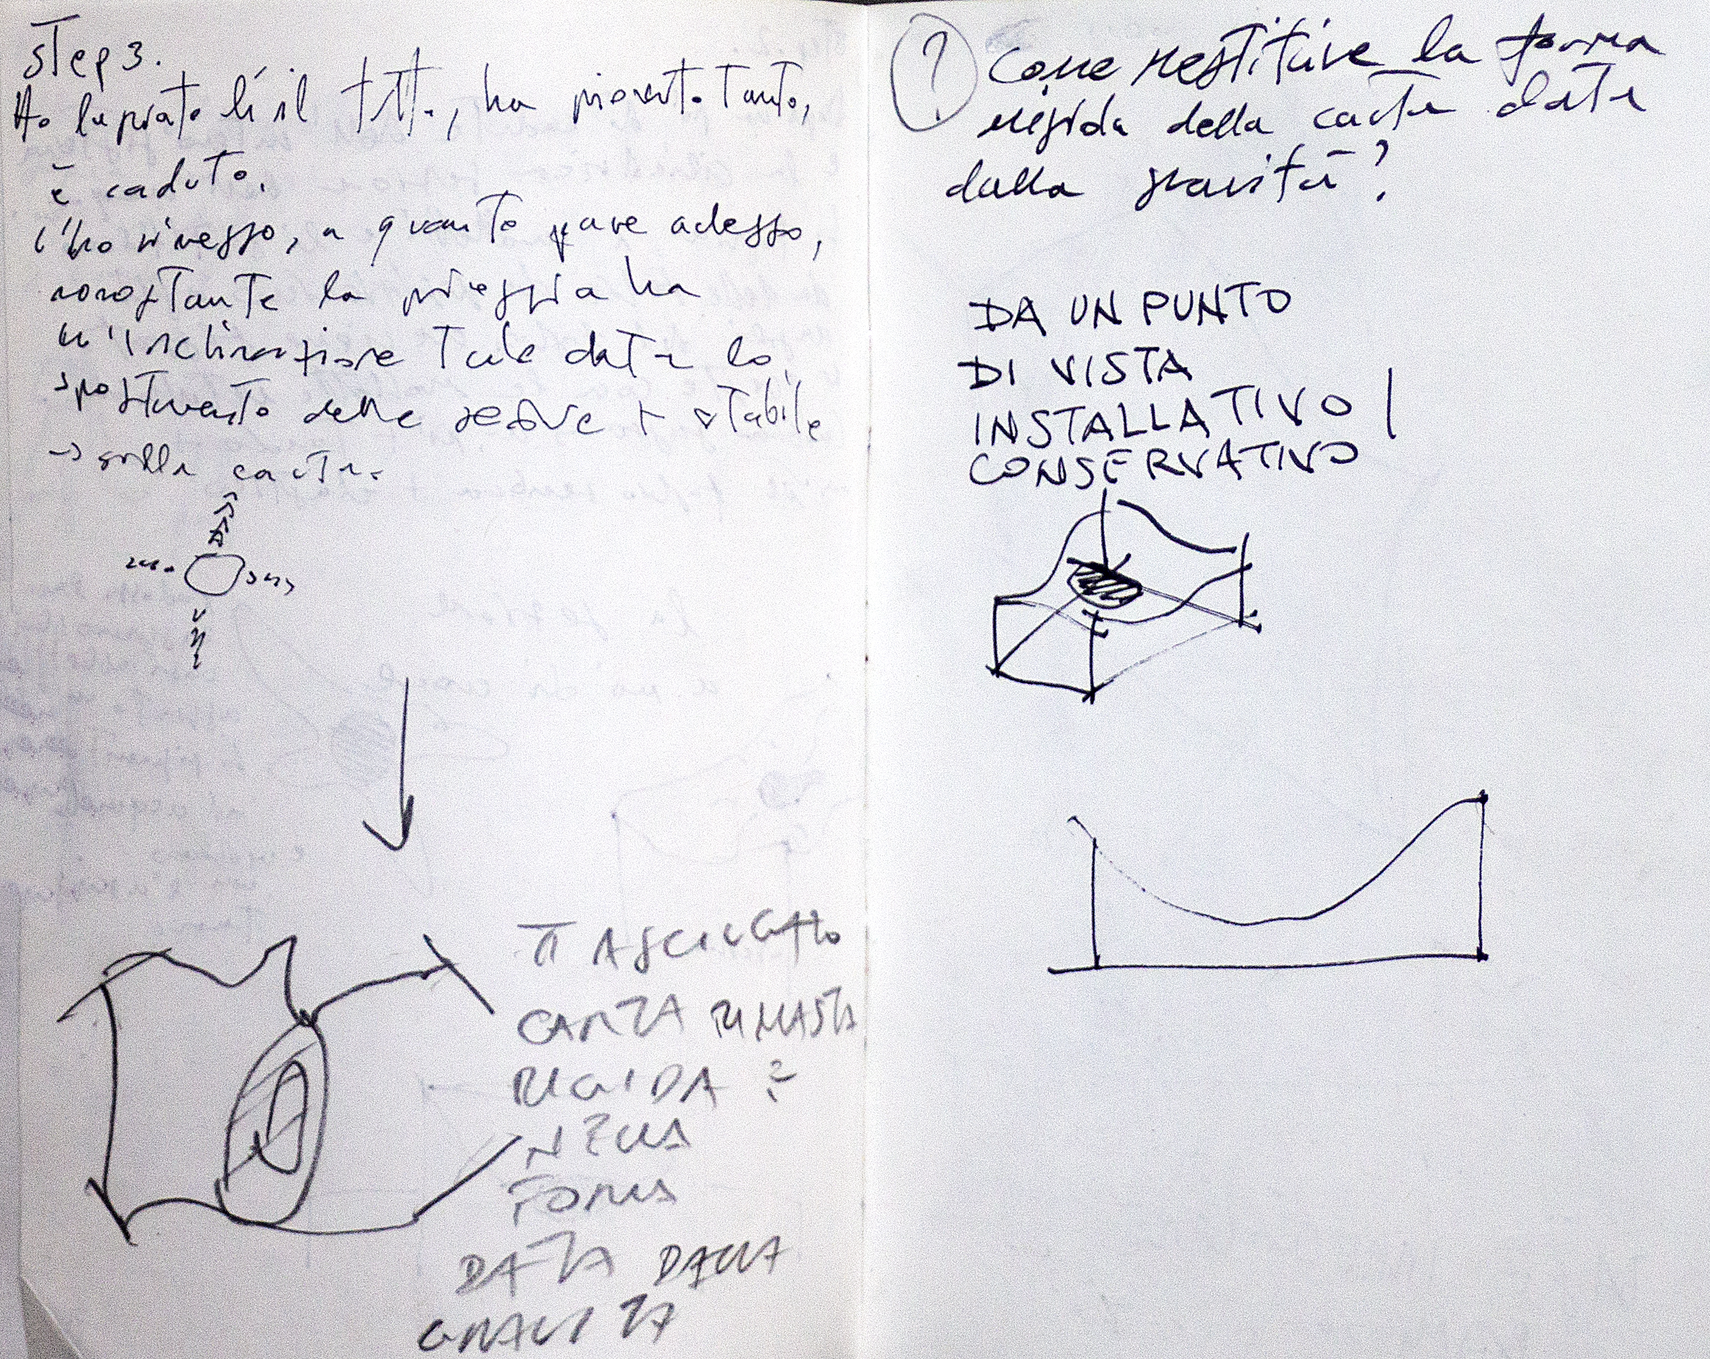 Step 3.
Ho lasciato lì il tutto, ha piovuto tanto,
è caduto.
l'ho rimesso, a quanto pare adesso,
nonostante la pioggia ha
un'inclinazione tale data lo
spostamento delle + stabile
→ sulla carta.
ASCIUGATO
CARTA RIMASTA
RIGIDA ?
NELLA
FORMA
DATA DALLA
GRAVITÀ
? Come restituire la forma
rigida della carta data
dalla gravità?
DA UN PUNTO
DI VISTA
INSTALLATIVO /
CONSERVATIVO